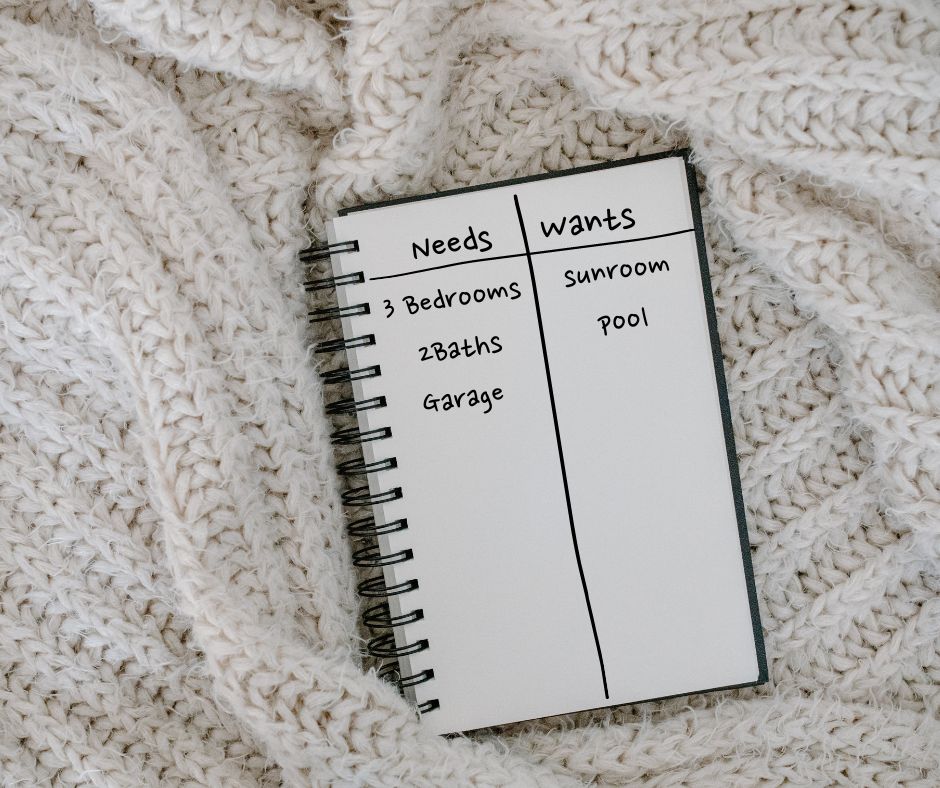 Needs
Wants
3 Bedrooms
2Baths
Garage
sunroom
pool